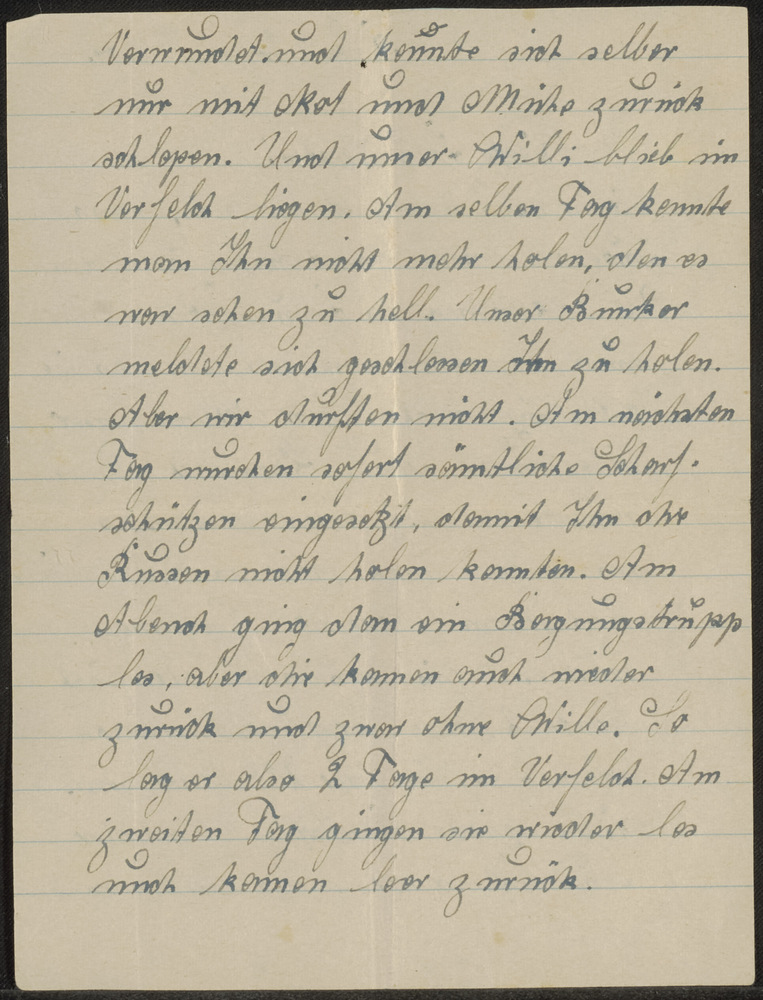 Verwundet und konnte sich selber
nur mit Not und Mühe zurück
schlepen. Und unser Willi blieb im
Vorfeld liegen. Am selben Tag konnte
man Ihn nicht mehr holen, den es
war schon zu hell. Unser Bunker
meldete sich geschlossen Ihn zu holen.
Aber wir durften nicht. Am nächsten
Tag wurden sofort sämtliche Scharf-
schützen eingesetzt, damit Ihn die
Russen nicht holen konnten. Am
Abend ging dan ein Bergungstrupp
los, aber die kamen auch wieder
zurück und zwar ohne Wille. So
lag er also 2 Tage im Vorfeld. Am
zweiten Tag gingen sie wieder los
und kamen leer zurück.